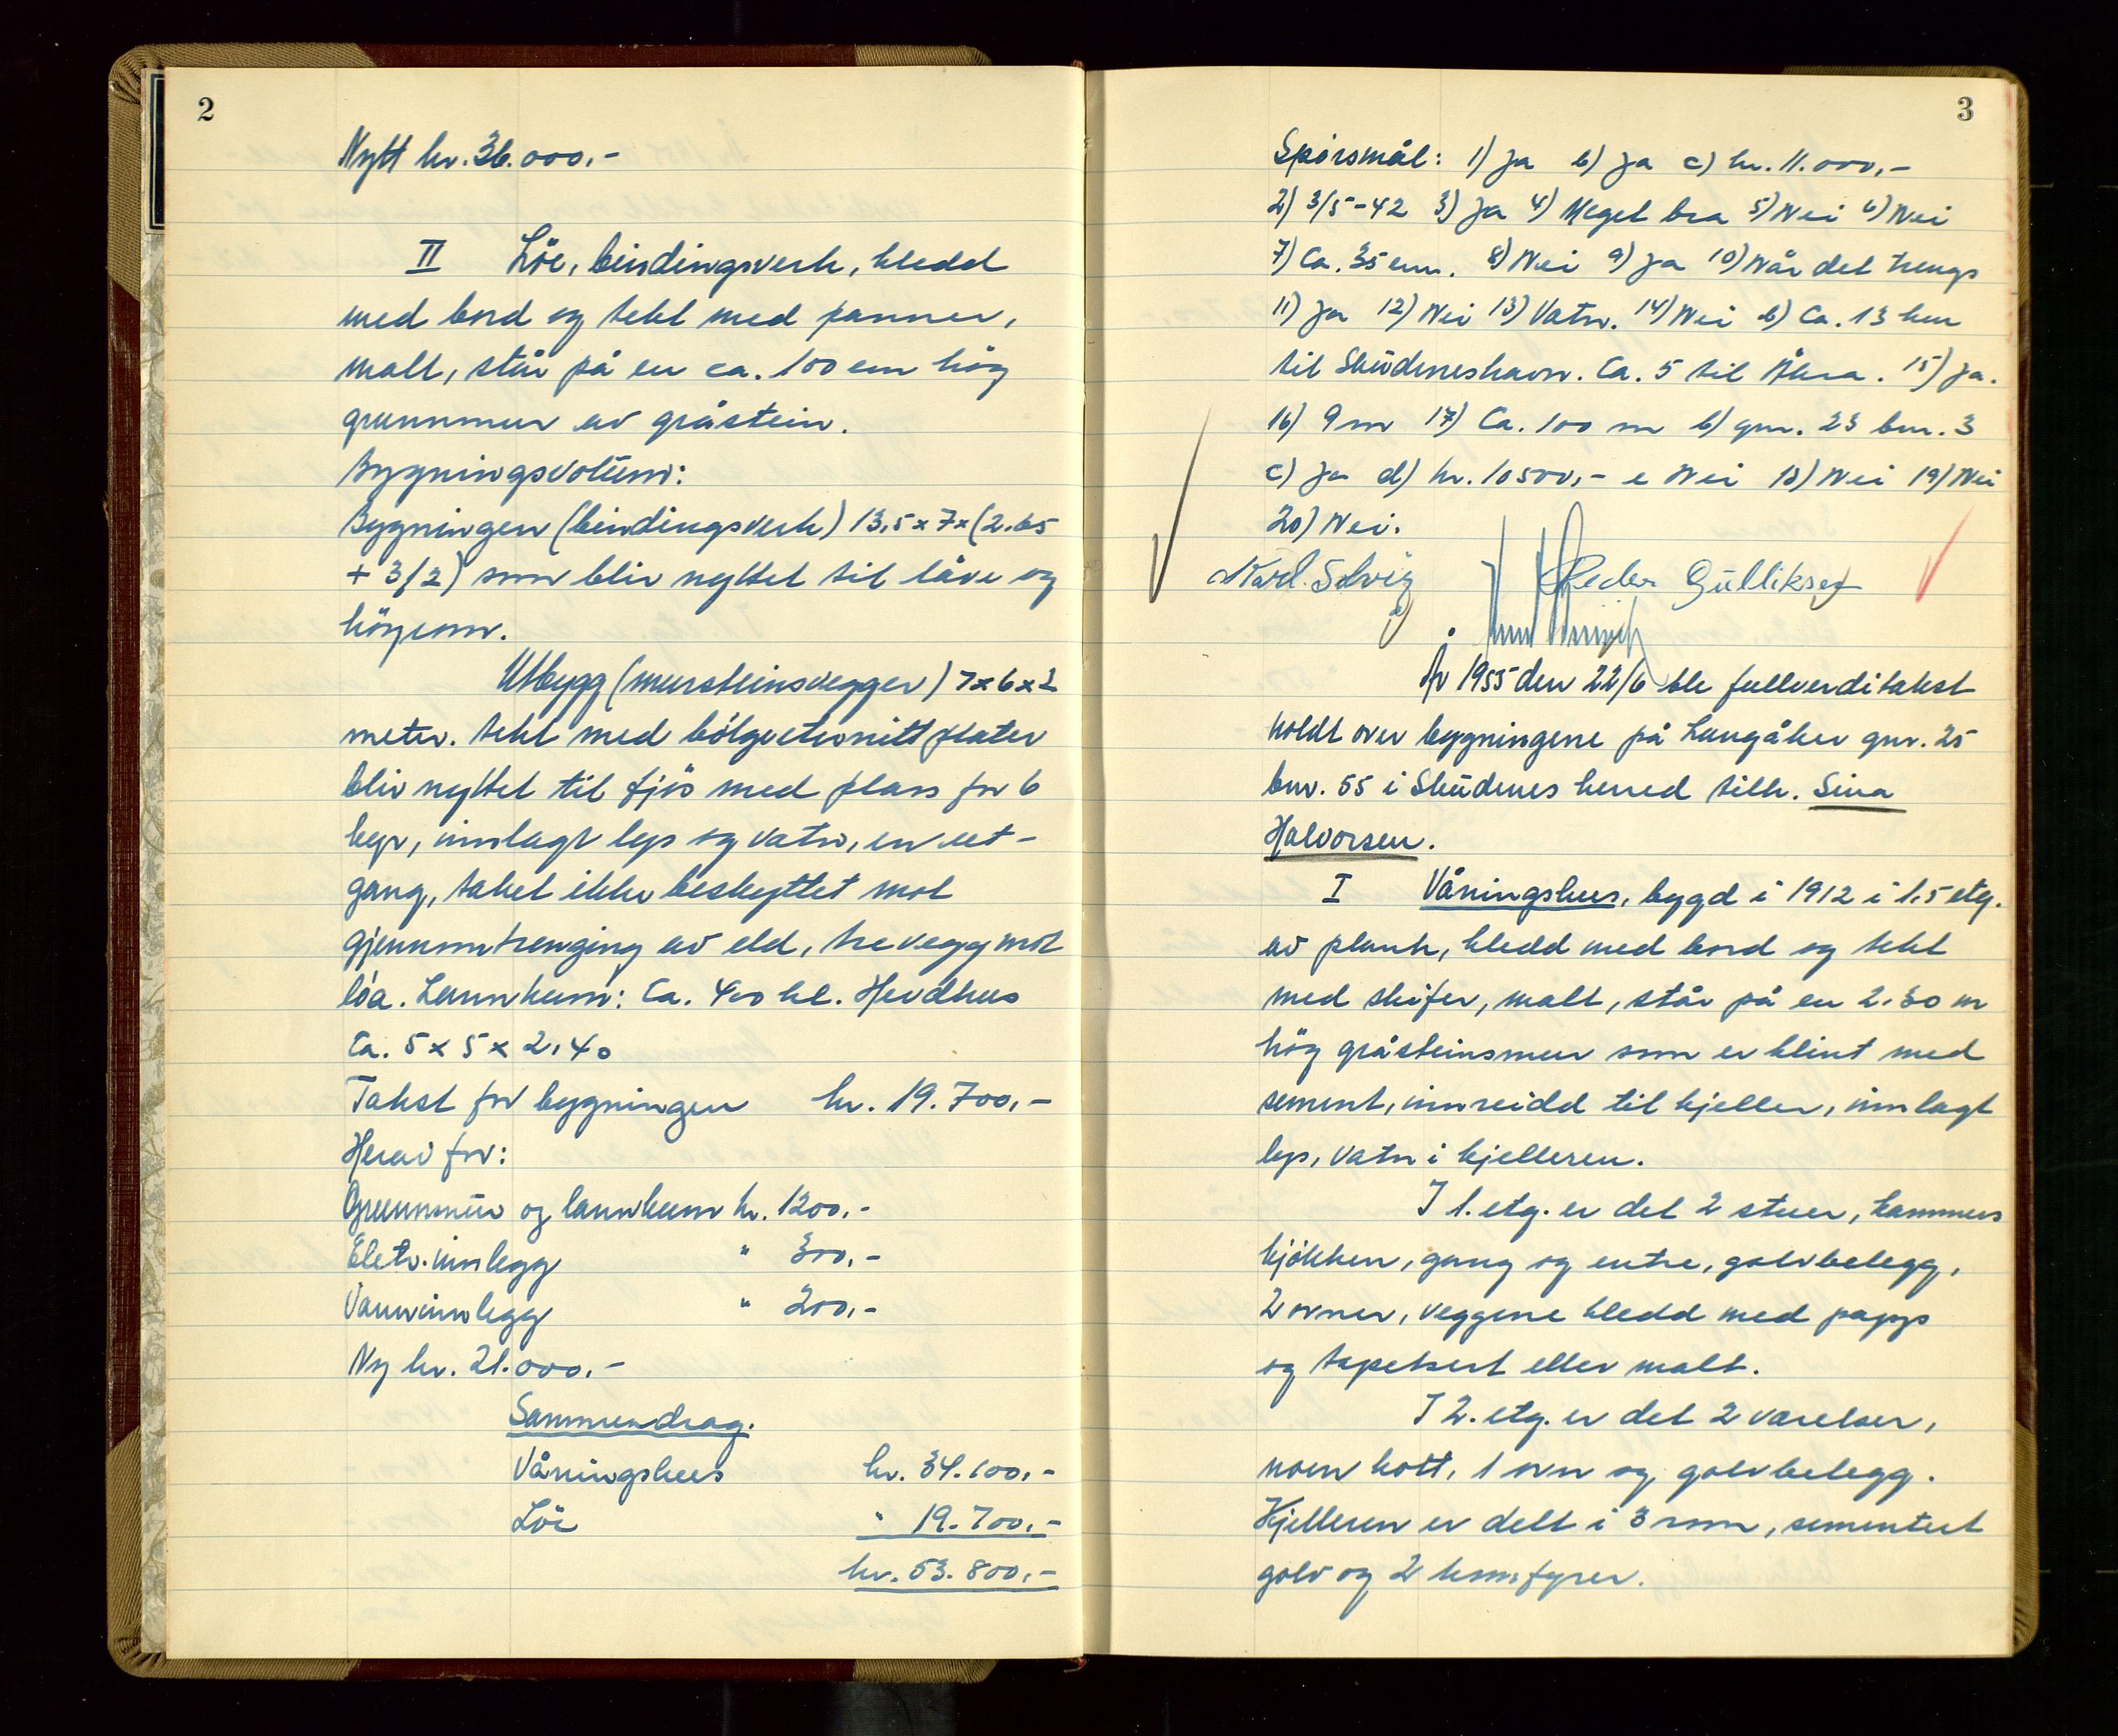 2
Nytt kr. 36.000,-
II Löe, bindingsverk, kledd
med bord og tekt med panner,
malt, står på en ca. 100 cm hög
grunnmur av gråstein.
Bygningsvolum:
Bygningen (bindingsverk) 13,5 x 7 x (2.65
+ 3/2) som blir nyttet til låve og
höyrom.
Utbygg (mursteinsvegger) 7x6x2
meter. tekt med bölgeeternittplater
blir nyttet til fjös med plass for 6
kyr, innlagt lys og vatn, en ut-
gang, taket ikke beskyttet mot
gjennomtrenging av eld, trevegg mot
löa. Lannkum: Ca. 400 hl. Herdhus
Ca. 5 x 5 x 2,40
Takst for bygningen kr. 19.700,-
Herav for:
Grunnmur og lannkum kr. 1200,-
Eletr. innlegg " 300,-
Vanninnlegg " 200,-
Ny kr. 21.000,-
Sammendrag.
Våningshus kr. 34.100,-
Löe " 19.700,-
kr. 53.800,-
3
Spörsmål: 1) Ja b) Ja c) kr. 11.000,-
2) 3/5-42 3) Ja 4) Meget bra 5) Nei 6) Nei
7) Ca. 35 cm. 8) Nei 9) Ja 10) Når det trengs
11) Ja 12) Nei 13) Vatn. 14) Nei b) Ca. 13 km
til Skudeneshavn. Ca. 5 til Åkra. 15) Ja.
16) 9 m 17) Ca. 100 m b) gnr. 23 bnr. 3
c) Ja d) kr. 10500,- e Nei 18) Nei 19) Nei
20) Nei.
Karl. Solvig Peder Gulliksen
År 1955 den 22/6 ble fullverditakst
holdt over bygningene på Langåker gnr. 25
bnr. 55 i Skudenes herred tilh. Sina
Halvorsen.
I Våningshus, bygd i 1912 i 1.5 etg.
av plank, kledd med bord og tekt
med skifer, malt, står på en 2.30 m
hög gråsteinsmur som er klint med
sement, innreidd til kjeller, innlagt
lys, vatn i kjelleren.
I 1. etg. er det 2 stuer, kammers
kjökken, gang og entre, golvbelegg,
2 ovner, veggene kledd med papp
og tapetsert eller malt.
I 2. etg. er det 2 varelser,
noen kott, 1 ovn og golvbelegg.
Kjelleren er delt i 3 rom, sementert
golv og 2 komfyrer.